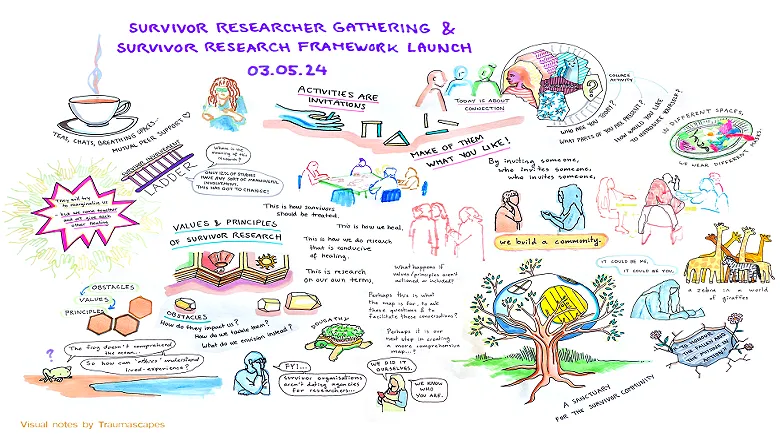 SURVIVOR RESEARCHER GATHERING &
SURVIVOR RESEARCH FRAMEWORK LAUNCH
03.05.24
TEAS, CHATS, BREATHING SPACES...
MUTUAL PEER SUPPORT
ACTIVITIES ARE
INVITATIONS
MAKE OF THEM
WHAT YOU LIKE!
TODAY IS ABOUT
CONNECTION
COLLAGE
ACTIVITY
WHO ARE YOU TODAY?
WHAT PARTS OF YOU ARE PRESENT?
HOW WOULD YOU LIKE
TO INTRODUCE YOURSELF?
IN DIFFERENT SPACES,
WE WEAR DIFFERENT MASKS.
SURVIVOR INVOLVEMENT
LADDER
Where is the
meaning of this
research?
ONLY 12% OF STUDIES
HAVE ANY SORT OF MEANINGFUL
INVOLVEMENT.
THIS HAS GOT TO CHANGE!
They will try
to marginalise us
but we come together
and we give each
other healing
By inviting someone,
who invites someone,
who invites someone,
we build a community.
This is how survivors
should be treated.
This is how we heal.
This is how we do research
that is conducive
of healing.
This is research
on our own terms.
VALUES & PRINCIPLES
OF SURVIVOR RESEARCH
What happens if
values/principles aren't
actioned or included?
Perhaps this is what
the map is for: to ask
these questions & to
facilitate these conversations?
Perhaps it is our
next step in creating
a more comprehensive
map...?
IT COULD BE ME,
IT COULD BE YOU.
a zebra in a world
of giraffes
OBSTACLES
VALUES
PRINCIPLES
OBSTACLES
How do they impact us?
How do we tackle them?
What do we envision instead?
?
The frog doesn't comprehend
the ocean...
So how can "ethics" understand
lived-experience?
FYI...
survivor organisations
aren't dating agencies
for researchers...
WE DID IT
OURSELVES.
WE KNOW
WHO
YOU ARE.
A SANCTUARY
FOR THE SURVIVOR COMMUNITY
Visual notes by Traumascapes